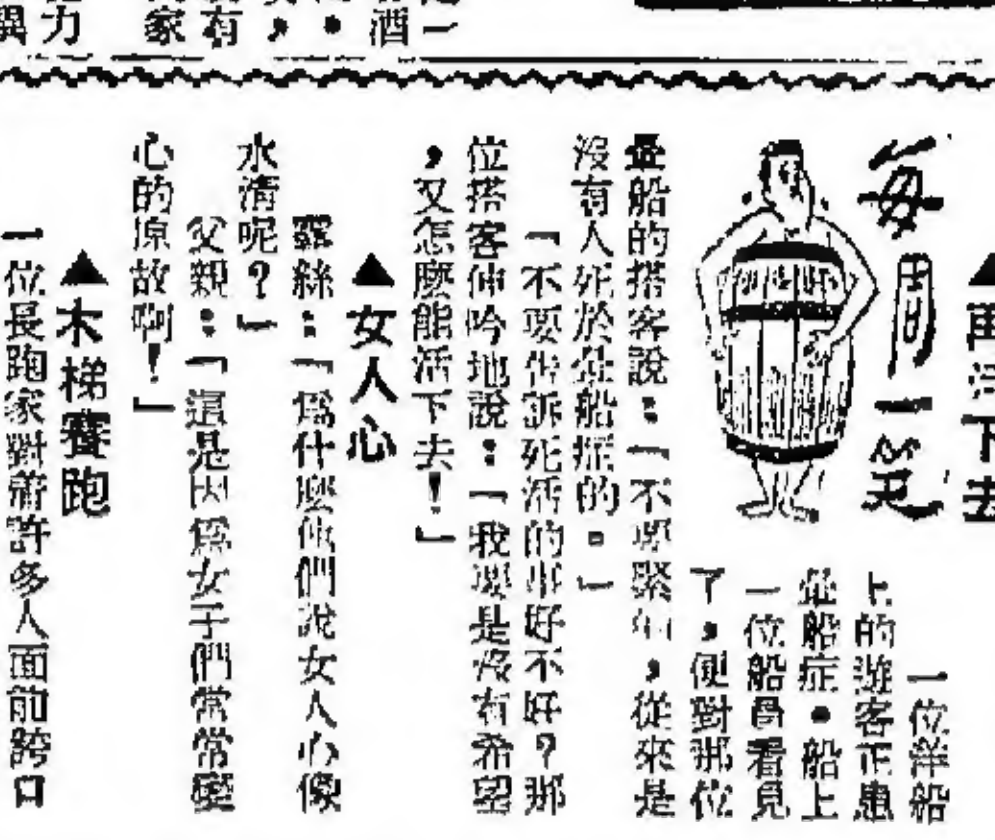 每周一笑
▲再活下去
一位洋船
上的遊客正患
暈船症。船上
一位船員看見
了，便對那位
暈船的搭客說：「不要緊的，從來是
沒有人死於暈船症的。」
「不要告訴死活的事好不好？那
位搭客呻吟地說：「我要是沒有希望
，又怎麼能活下去！」
▲女人心
露絲：「爲什麼他們說女人心像
水清呢？」
父親：「這是因爲女子們常常變
心的原故啊！」
▲木梯賽跑
一位長跑家對着許多人面前誇口